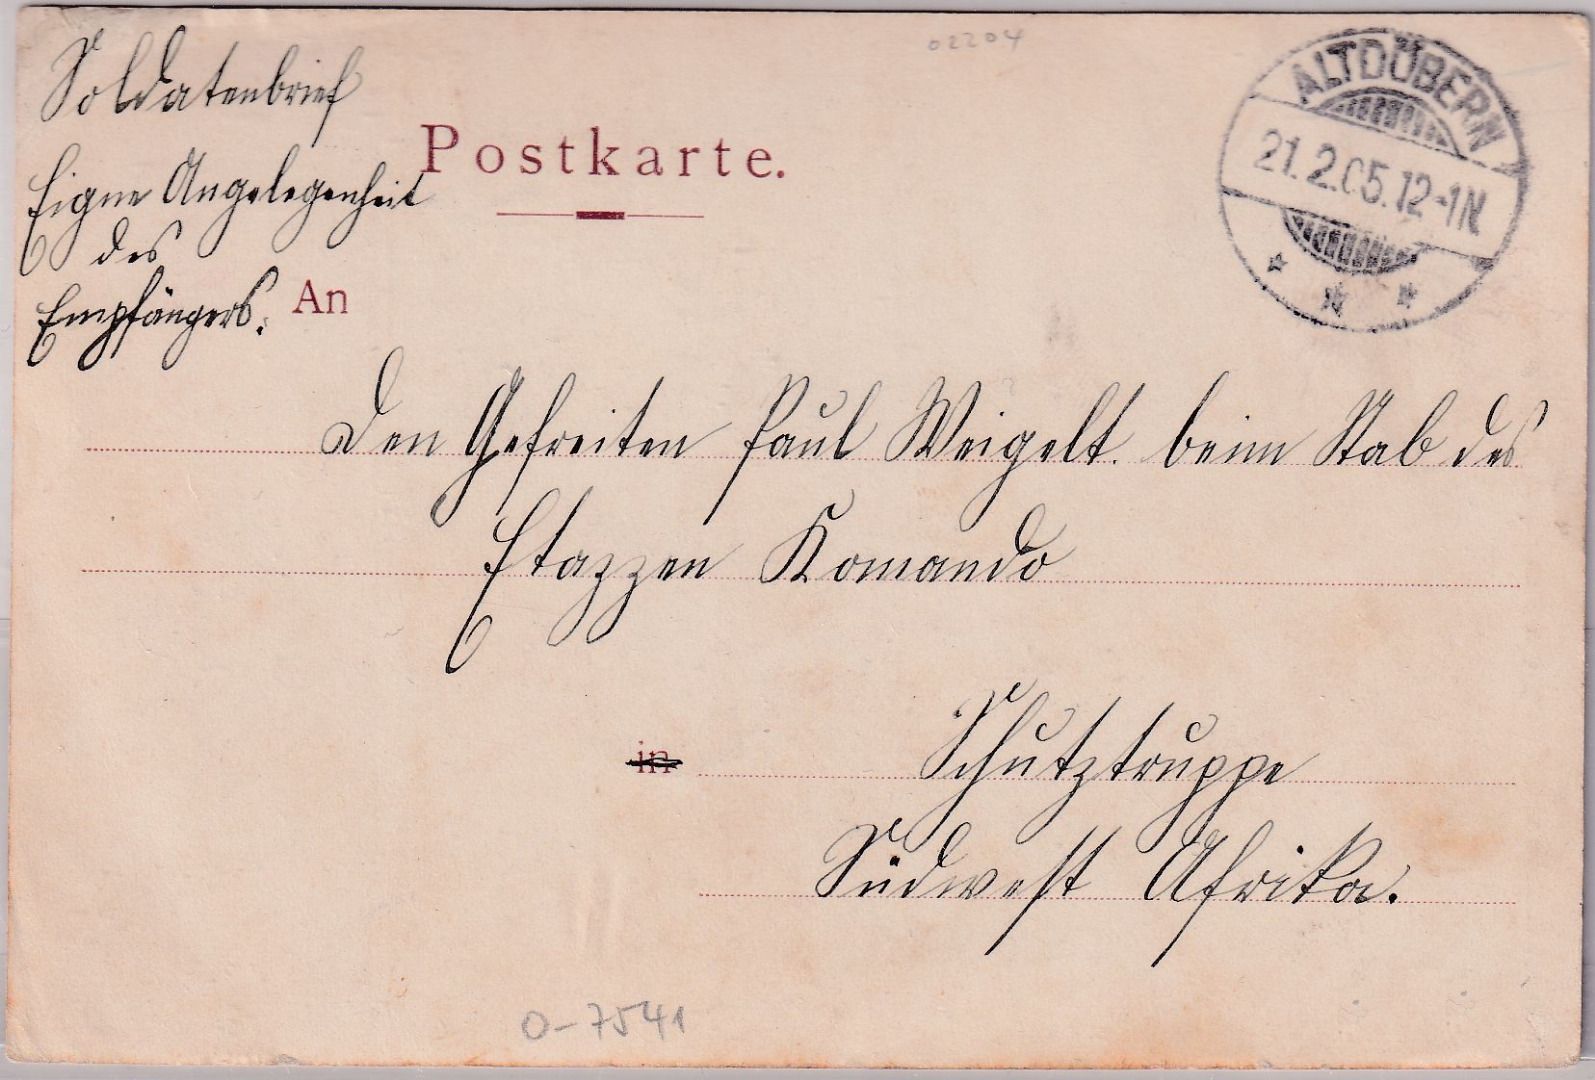 02204
Soldatenbrief
Eigne Angelegenheit
des
Empfängers.
Postkarte.
ALTDÖBERN
21.2.05.12-1N.
An
Den Gefreiten Paul Weigelt. beim Stab des
Etappen Komando
in
Schutztruppe
Südwest Afrika.
O-7541